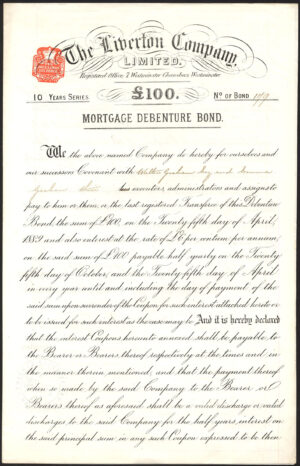 The Liverton Company,
LIMITED.
Registered Office, 7 Westminster Chambers, Westminster.
10 YEARS SERIES £100. No OF BOND
MORTGAGE DEBENTURE BOND.
We the above named Company do hereby for ourselves and
our successors Covenant with and
executors administrators and assigns to
pay to him or them, or the last registered Transferee of this Debenture
Bond, the sum of £100, on the Twenty fifth day of April,
1889 and also interest at the rate of £6 per centum per annum,
on the said sum of £100 payable half yearly on the Twenty
fifth day of October, and the Twenty fifth day of April
in every year until and including the day of payment of the
said sum upon surrender of the Coupon for such interest attached hereto or
to be issued for such interest as the case may be And it is hereby declared
that the interest Coupons hereunto annexed shall be payable to
the Bearer or Bearers thereof respectively at the times and in
the manner therein mentioned, and that the payment thereof
when so made by the said Company to the Bearer or
Bearers thereof as aforesaid shall be a valid discharge or valid
discharges to the said Company for the half years interest on
the said principal sum in any such Coupon expressed to be then